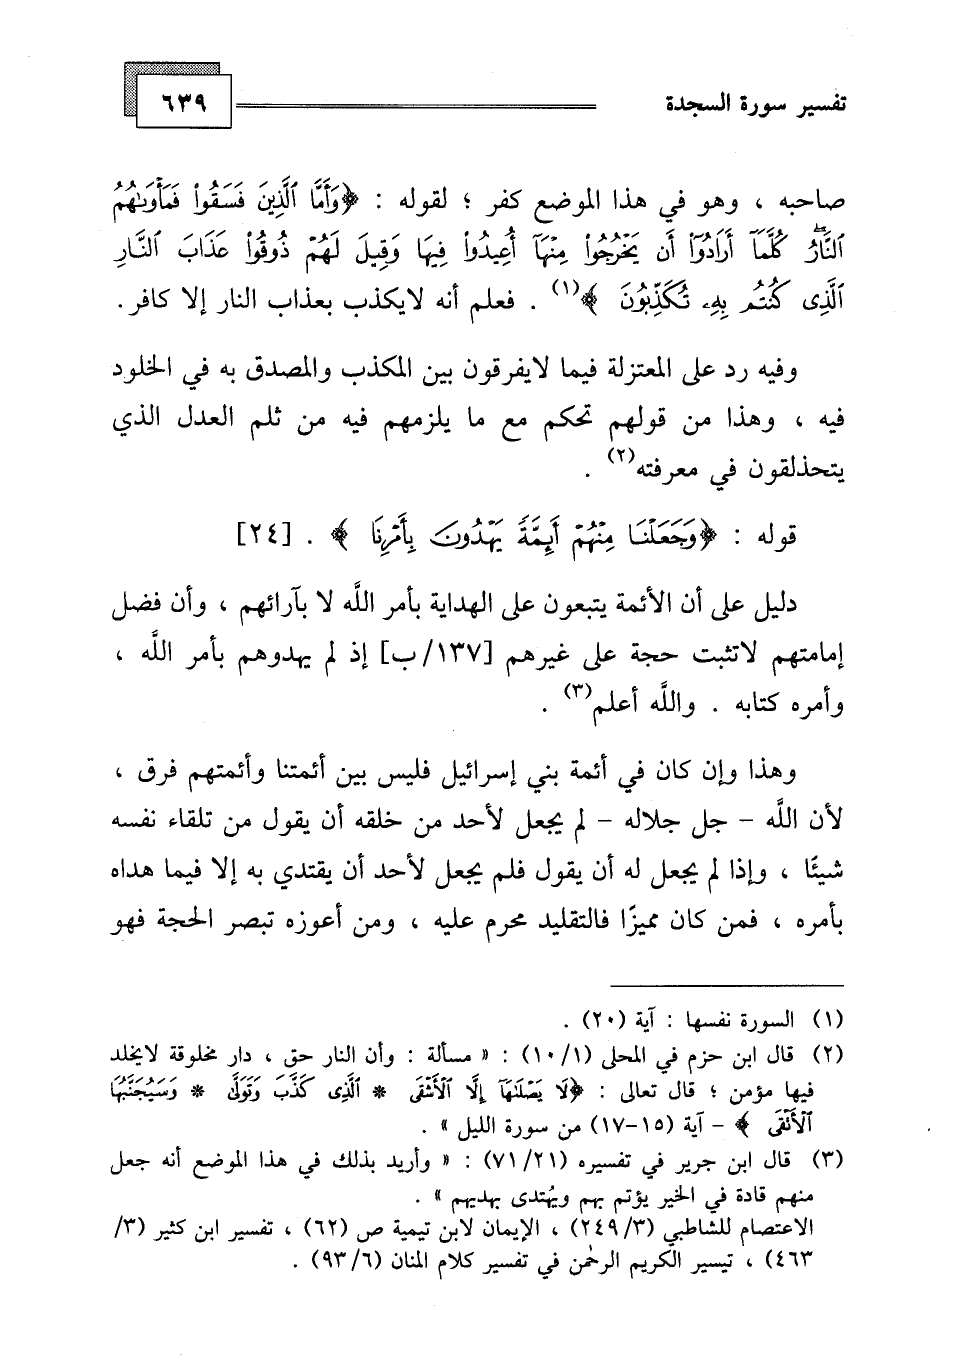 تفسير سورة السجدة
٦٣٩
صاحبه ، وهو في هذا الموضع كفر ؛ لقوله : ﴿وَأَمَّا ٱلَّذِينَ فَسَقُوا۟ فَمَأْوَىٰهُمُ
ٱلنَّارُ ۖ كُلَّمَآ أَرَادُوٓا۟ أَن يَخْرُجُوا۟ مِنْهَآ أُعِيدُوا۟ فِيهَا وَقِيلَ لَهُمْ ذُوقُوا۟ عَذَابَ ٱلنَّارِ
ٱلَّذِى كُنتُم بِهِۦ تُكَذِّبُونَ ﴾(١) . فعلم أنه لايكذب بعذاب النار إلا كافر .
وفيه رد على المعتزلة فيما لايفرقون بين المكذب والمصدق به في الخلود
فيه ، وهذا من قولهم تحكم مع ما يلزمهم فيه من ثلم العدل الذي
يتحذلقون في معرفته(٢) .
قوله : ﴿وَجَعَلْنَا مِنْهُمْ أَئِمَّةً يَهْدُونَ بِأَمْرِنَا ﴾ . [٢٤]
دليل على أن الأئمة يتبعون على الهداية بأمر اللَّه لا بآرائهم ، وأن فضل
إمامتهم لاتثبت حجة على غيرهم [١٣٧/ب] إذ لم يهدوهم بأمر اللَّه ،
وأمره كتابه . واللَّه أعلم(٣) .
وهذا وإن كان في أئمة بني إسرائيل فليس بين أئمتنا وأئمتهم فرق ،
لأن اللَّه – جل جلاله – لم يجعل لأحد من خلقه أن يقول من تلقاء نفسه
شيئًا ، وإذا لم يجعل له أن يقول فلم يجعل لأحد أن يقتدي به إلا فيما هداه
بأمره ، فمن كان مميزًا فالتقليد محرم عليه ، ومن أعوزه تبصر الحجة فهو
(١) السورة نفسها : آية (٢٠) .
(٢) قال ابن حزم في المحلى (١٠/١) : « مسألة : وأن النار حق ، دار مخلوقة لايخلد
فيها مؤمن ؛ قال تعالى : ﴿لَا يَصْلَىٰهَآ إِلَّا ٱلْأَشْقَى * ٱلَّذِى كَذَّبَ وَتَوَلَّىٰ * وَسَيُجَنَّبُهَا
ٱلْأَتْقَى ﴾ – آية (١٥–١٧) من سورة الليل » .
(٣) قال ابن جرير في تفسيره (٧١/٢١) : « وأريد بذلك في هذا الموضع أنه جعل
منهم قادة في الخير يؤتم بهم ويُهتدى بهديهم » .
الاعتصام للشاطبي (٢٤٩/٣) ، الإيمان لابن تيمية ص (٦٢) ، تفسير ابن كثير (٣/
٤٦٣) ، تيسير الكريم الرحمٰن في تفسير كلام المنان (٩٣/٦) .